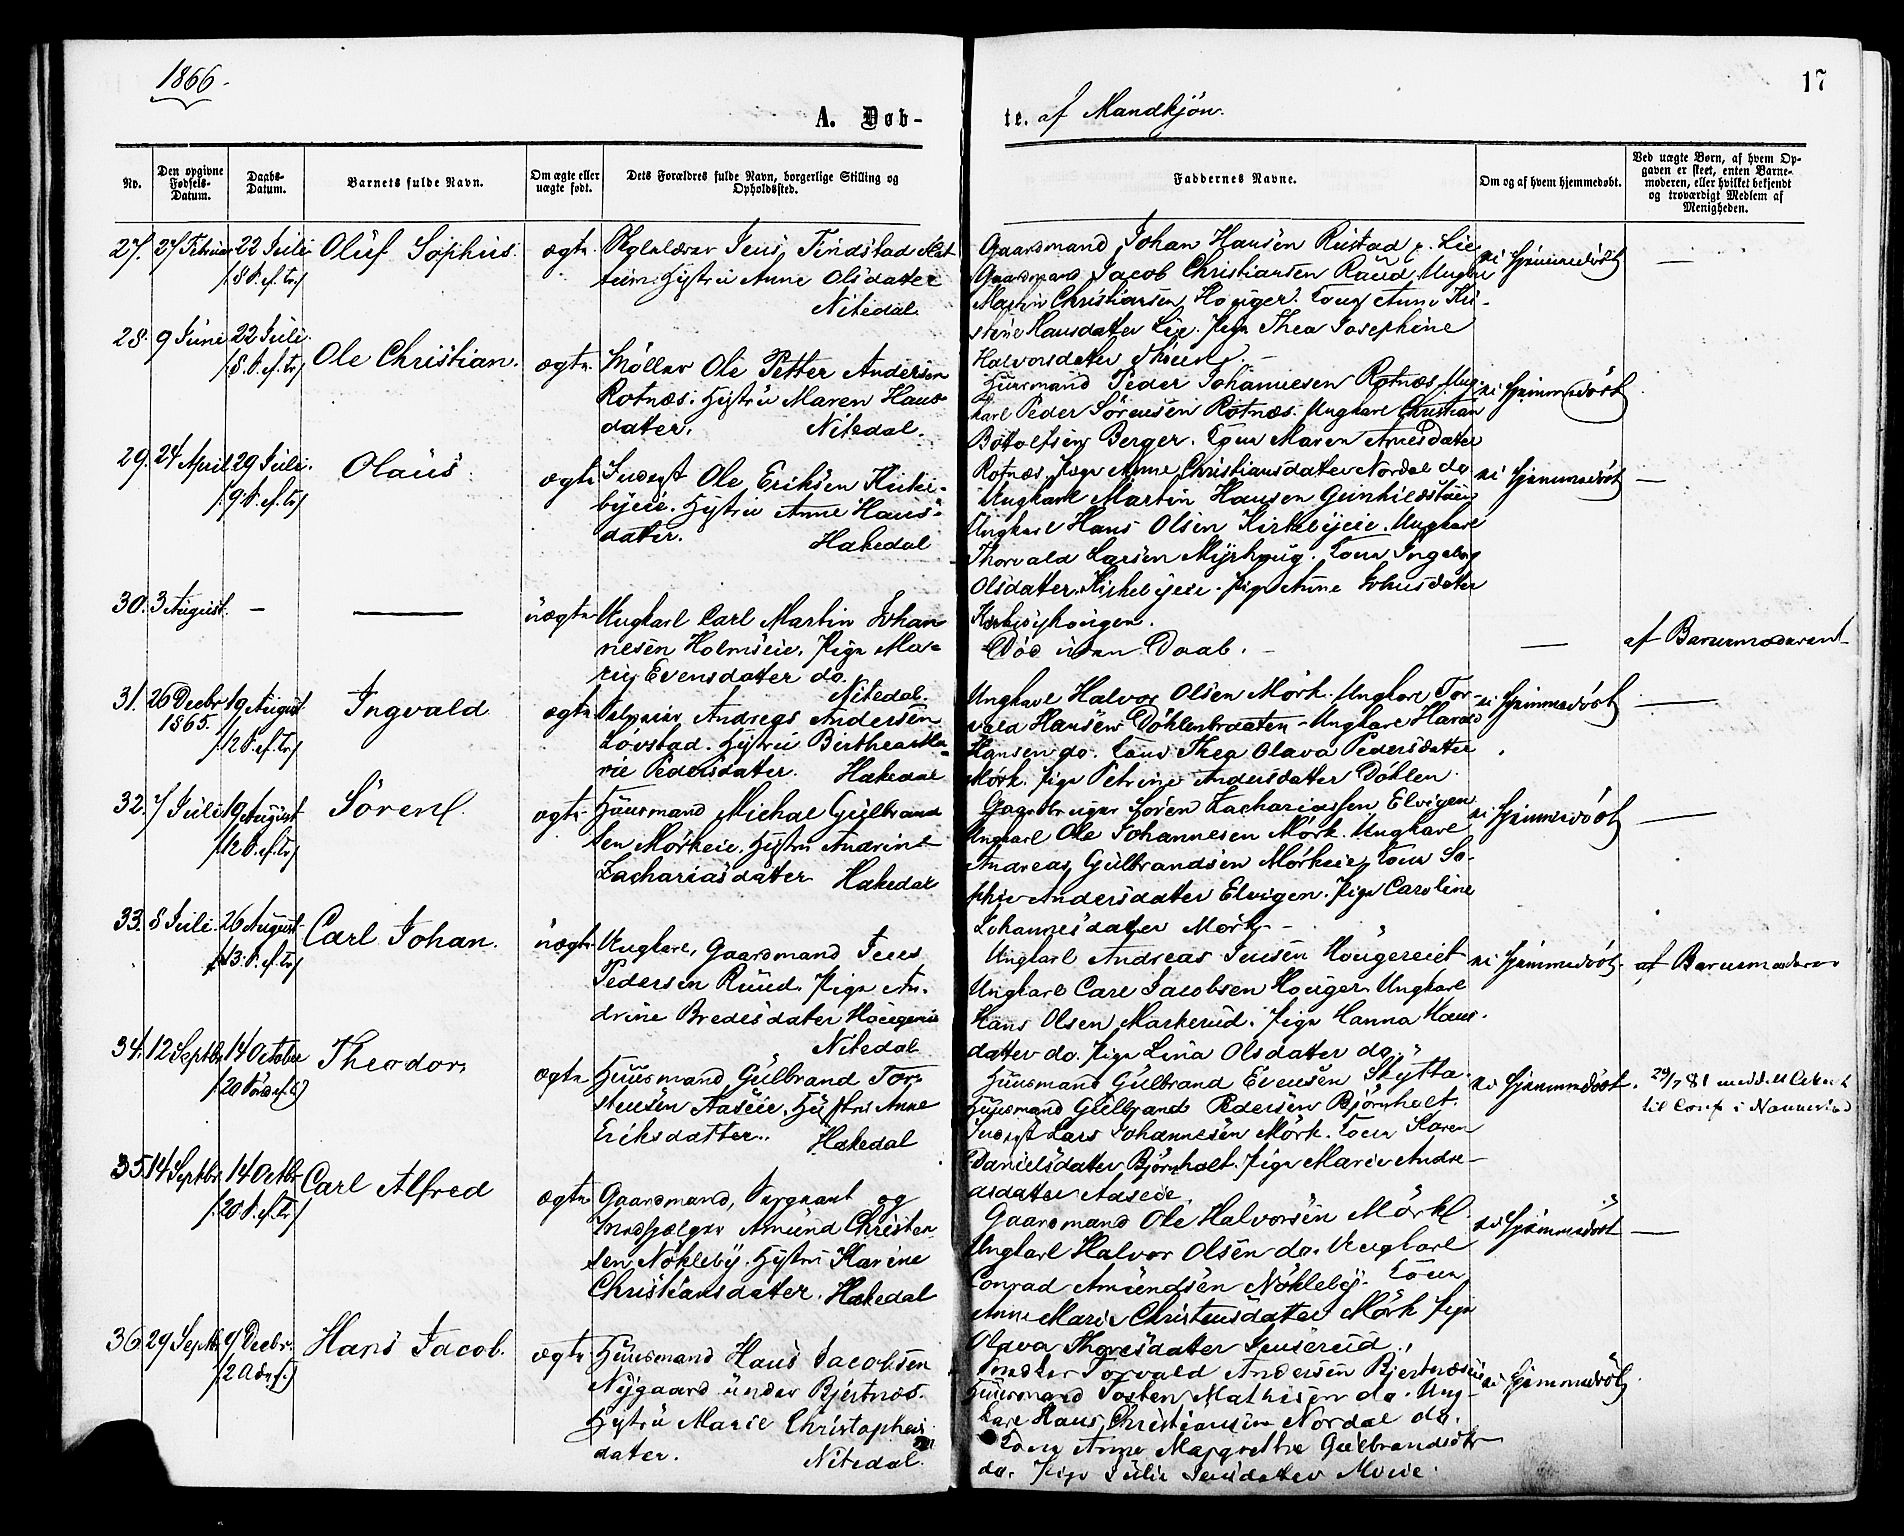 1866.
17
A. Døb-
te. af Mandkjön.
No.
Den opgivne Fødsels-Datum.
Daabs-Datum.
Barnets fulde Navn.
Om ægte eller uægte født.
Dets Forældres fulde Navn, borgerlige Stilling og Opholdssted.
Faddernes Navne.
Om og af hvem hjemmedøbt.
Ved uægte Børn, af hvem Op-
gaven er skeet, enten Barne-
moderen, eller hvilket bekjendt
og troværdigt Medlem af
Menigheden.
27. 27 Februar 22 Juli Oluf Sophus. ægte
Jens Tindstad
Hustru Anne Olsdatter
Nitedal.
Gaardmand Johan Hansen Rustad
Gaardmand Jacob Christiansen Raud Ungkarl
Martin Christiansen Houger. Kone Anne Ki-
stine Hansdatter Lie. Pige Thea Josephine
Halvorsdatter
ei hjemmedöbt
28. 9 Juni 22 Juli Ole Christian. ægte
Möller Ole Petter Andersen
Rotnæs. Hustru Maren Hans
datter. Nitedal.
Huusmand Peder Johannesen Rotnæs. Ung-
karl Peder Sörensen Rotnæs. Ungkarl Christian
Botolfsen Berger. Kone Maren Arnesdatter
Rotnæs. Pige Anne Christiansdatter Nordal do
ei hjemmedöbt
29. 24 April 29 Juli. Olaus. ægte
Inderst Ole Eriksen Kirke-
byeie. Hustru Anne Hans-
datter. Hakedal
Ungkarl Martin Hansen
Ungkarl Hans Olsen Kirkebyeie. Ungkarl
Thorvald Larsen Myrhaug. Kone Ingeborg
Olsdatter Kirkebyeie. Pige Anne Johnsdatter
ei hjemmedöbt
30. 3 August. — uægte
Ungkarl Carl Martin Johan
nesen Holmseie. Pige Ma-
rie Evensdatter do.
Nitedal.
Död uden Daab.
af Barnemoderen
31. 26 Decbr 1865. 19 August Ingvald ægte
Andreas Andersen
Lövstad. Hustru Birthe Ma-
rie Pedersdatter. Hakedal
Ungkarl Halvor Olsen Mörk. Ungkarl Tor-
vald Hansen Döhlenbraaten. Ungkarl Harald
Hansen do. Kone Thea Olava Pedersdatter
Mörk. Pige Petrine Andersdatter Döhlen.
ei hjemmedöbt
32. 7 Juli 19 August Sören. ægte
Huusmand Michal Gulbrand
sen Mörkeie. Hustru Andrine
Zachariasdatter Hakedal
Gaardbruger Sören Zachariassen Elvigen
Ungkarl Ole Johannesen Mörk. Ungkarl
Andreas Gulbrandsen Mörkeie. Kone So-
phie Andersdatter Elvigen. Pige Caroline
Johannesdatter Mörk
ei hjemmedöbt
33. 8 Juli. 26 August Carl Johan. uægte
Ungkarl, Gaardmand Jens
Pedersen Ruud. Pige An-
drine Bredesdatter Hougerie
Nitedal
Ungkarl Andreas Jensen Hougereiet
Ungkarl Carl Jacobsen Houger. Ungkarl
Hans Olsen Markerud. Pige Hanna Hans-
datter do. Pige Lina Olsdatter do.
ei hjemmedöbt. af Barnemoderen
34. 12 Septbr 14 October Theodor. ægte
Huusmand Gulbrand Tor-
stensen Aaseie, Hustru Anne
Eriksdatter. Hakedal
Huusmand Gulbrand Evensen Skytta.
Huusmand Gulbrand Pedersen Björnholt.
Inderst Lars Johannesen Mörk. Kone Karen
Danielsdatter Björnholt. Pige Marie Andre-
asdatter Aaseie.
ei hjemmedöbt.
29/7 81 meddelt Attest
til Conf. i
35. 14 Septbr 14 Octbr Carl Alfred ægte
Gaardmand, Sergeant og
Amund Christen
sen Nökleby. Hustru Karine
Christiansdatter. Hakedal
Gaardmand Ole Halvorsen Mörk.
Ungkarl Halvor Olsen do. Ungkarl
Conrad Amundsen Nökleby. Kone
Anne Marie Christensdatter Mörk. Pige
Olava Thoresdatter
ei hjemmedöbt
36. 29 Septbr 9 Decbr. Hans Jacob. ægte
Huusmand Hans Jacobsen
Nygaard under Bjertnæs.
Hustru Marie Christophers
datter. Nitedal.
Torvald Andersen Bjertnæseie
Huusmand Tosten Mathisen do. Ung-
karl Hans Christiansen Nordal do.
Kone Anne Margrethe Gulbrandsdtr
do. Pige Julie Jensdatter Moeie.
ei hjemmedöbt